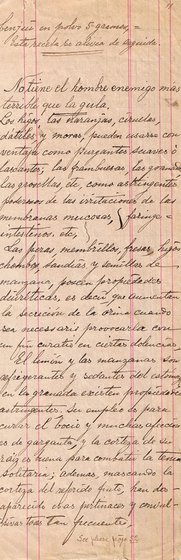 benjuí en polvo 5 gramos, =
Esta receta se altera de seguida.
No tiene el hombre enemigo mas
terrible que la gula.
Los higos, las naranjas, ciruelas,
dátiles y moras, pueden usarse con
ventaja como purgantes suaves ó
laxantes; las frambuesas, las
las grosellas, etc, como astringentes
poderosos de las irritaciones de las
membranas mucosas, (faringe =
intestinos, etc,
Las peras, membrillos, fresas, higos
chumbos, sandías y semillas de
manzana, poseen propiedades
diuréticas, es decir, que aumentan
la secreción de la orina cuando
sea necesario provocarla con
un fin curativo en ciertas dolencias.
El limón y las manzanas son
refrigerantes y sedantes del estómago
en la granada existen propiedades
astringentes. Su empleo es para
curar el bocio y muchas afecciones
de garganta y la corteza de su
raíz es buena para combatir la tenia
solitaria; ademas, mascando la
corteza del referido fruto, han des
aparecido esas pertinaces y convul-
sivas toses tan frecuentes